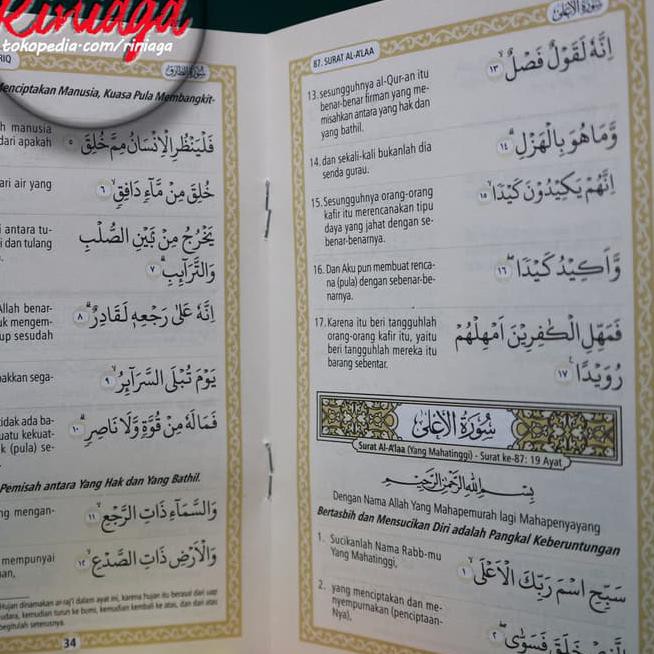 Ririaga
tokopedia.com/ririaga
RIQ
سورة الطارق
Menciptakan Manusia, Kuasa Pula Membangkit-
h manusia
dari apakah
فَلْيَنْظُرِ الْاِنْسَانُ مِمَّ خُلِقَ ۙ ٥
ari air yang
خُلِقَ مِنْ مَّاۤءٍ دَافِقٍ ۙ ٦
i antara tu-
i dan tulang
يَّخْرُجُ مِنْۢ بَيْنِ الصُّلْبِ
وَالتَّرَاۤىِٕبِ ۗ ٧
Allah benar-
uk mengem-
up sesudah
اِنَّهٗ عَلٰى رَجْعِهٖ لَقَادِرٌ ۗ ٨
pakkan sega-
يَوْمَ تُبْلَى السَّرَاۤىِٕرُ ۙ ٩
tidak ada ba-
uatu kekuat-
k (pula) se-
فَمَا لَهٗ مِنْ قُوَّةٍ وَّلَا نَاصِرٍ ۗ ١٠
Pemisah antara Yang Hak dan Yang Bathil.
ng mengan-
وَالسَّمَاۤءِ ذَاتِ الرَّجْعِ ۙ ١١
mempunyai
an,
وَالْاَرْضِ ذَاتِ الصَّدْعِ ۙ ١٢
Hujan dinamakan ar-raj'i dalam ayat ini, karena hujan itu berasal dari uap
udara, kemudian turun ke bumi, kemudian kembali ke atas, dan dari atas
begitulah seterusnya.
34
87. SURAT AL-A'LAA
سورة الأعلى
13. sesungguhnya al-Qur-an itu
benar-benar firman yang me-
misahkan antara yang hak dan
yang bathil.
اِنَّهٗ لَقَوْلٌ فَصْلٌ ۙ ١٣
14. dan sekali-kali bukanlah dia
senda gurau.
وَّمَا هُوَ بِالْهَزْلِ ۗ ١٤
15. Sesungguhnya orang-orang
kafir itu merencanakan tipu
daya yang jahat dengan se-
benar-benarnya.
اِنَّهُمْ يَكِيْدُوْنَ كَيْدًا ۙ ١٥
16. Dan Aku pun membuat renca-
na (pula) dengan sebenar-be-
narnya.
وَّاَكِيْدُ كَيْدًا ۖ ١٦
17. Karena itu beri tangguhlah
orang-orang kafir itu, yaitu
beri tangguhlah mereka itu
barang sebentar.
فَمَهِّلِ الْكٰفِرِيْنَ اَمْهِلْهُمْ
رُوَيْدًا ࣖ ١٧
سورة الأعلى
Surat Al-A'laa (Yang Mahatinggi) - Surat ke-87: 19 Ayat
بِسْمِ اللّٰهِ الرَّحْمٰنِ الرَّحِيْمِ
Dengan Nama Allah Yang Mahapemurah lagi Mahapenyayang
Bertasbih dan Mensucikan Diri adalah Pangkal Keberuntungan
1. Sucikanlah Nama Rabb-mu
Yang Mahatinggi,
سَبِّحِ اسْمَ رَبِّكَ الْاَعْلَى ۙ ١
2. yang menciptakan dan me-
nyempurnakan (penciptaan-
Nya),
الَّذِيْ خَلَقَ فَسَوّٰى ۖ ٢